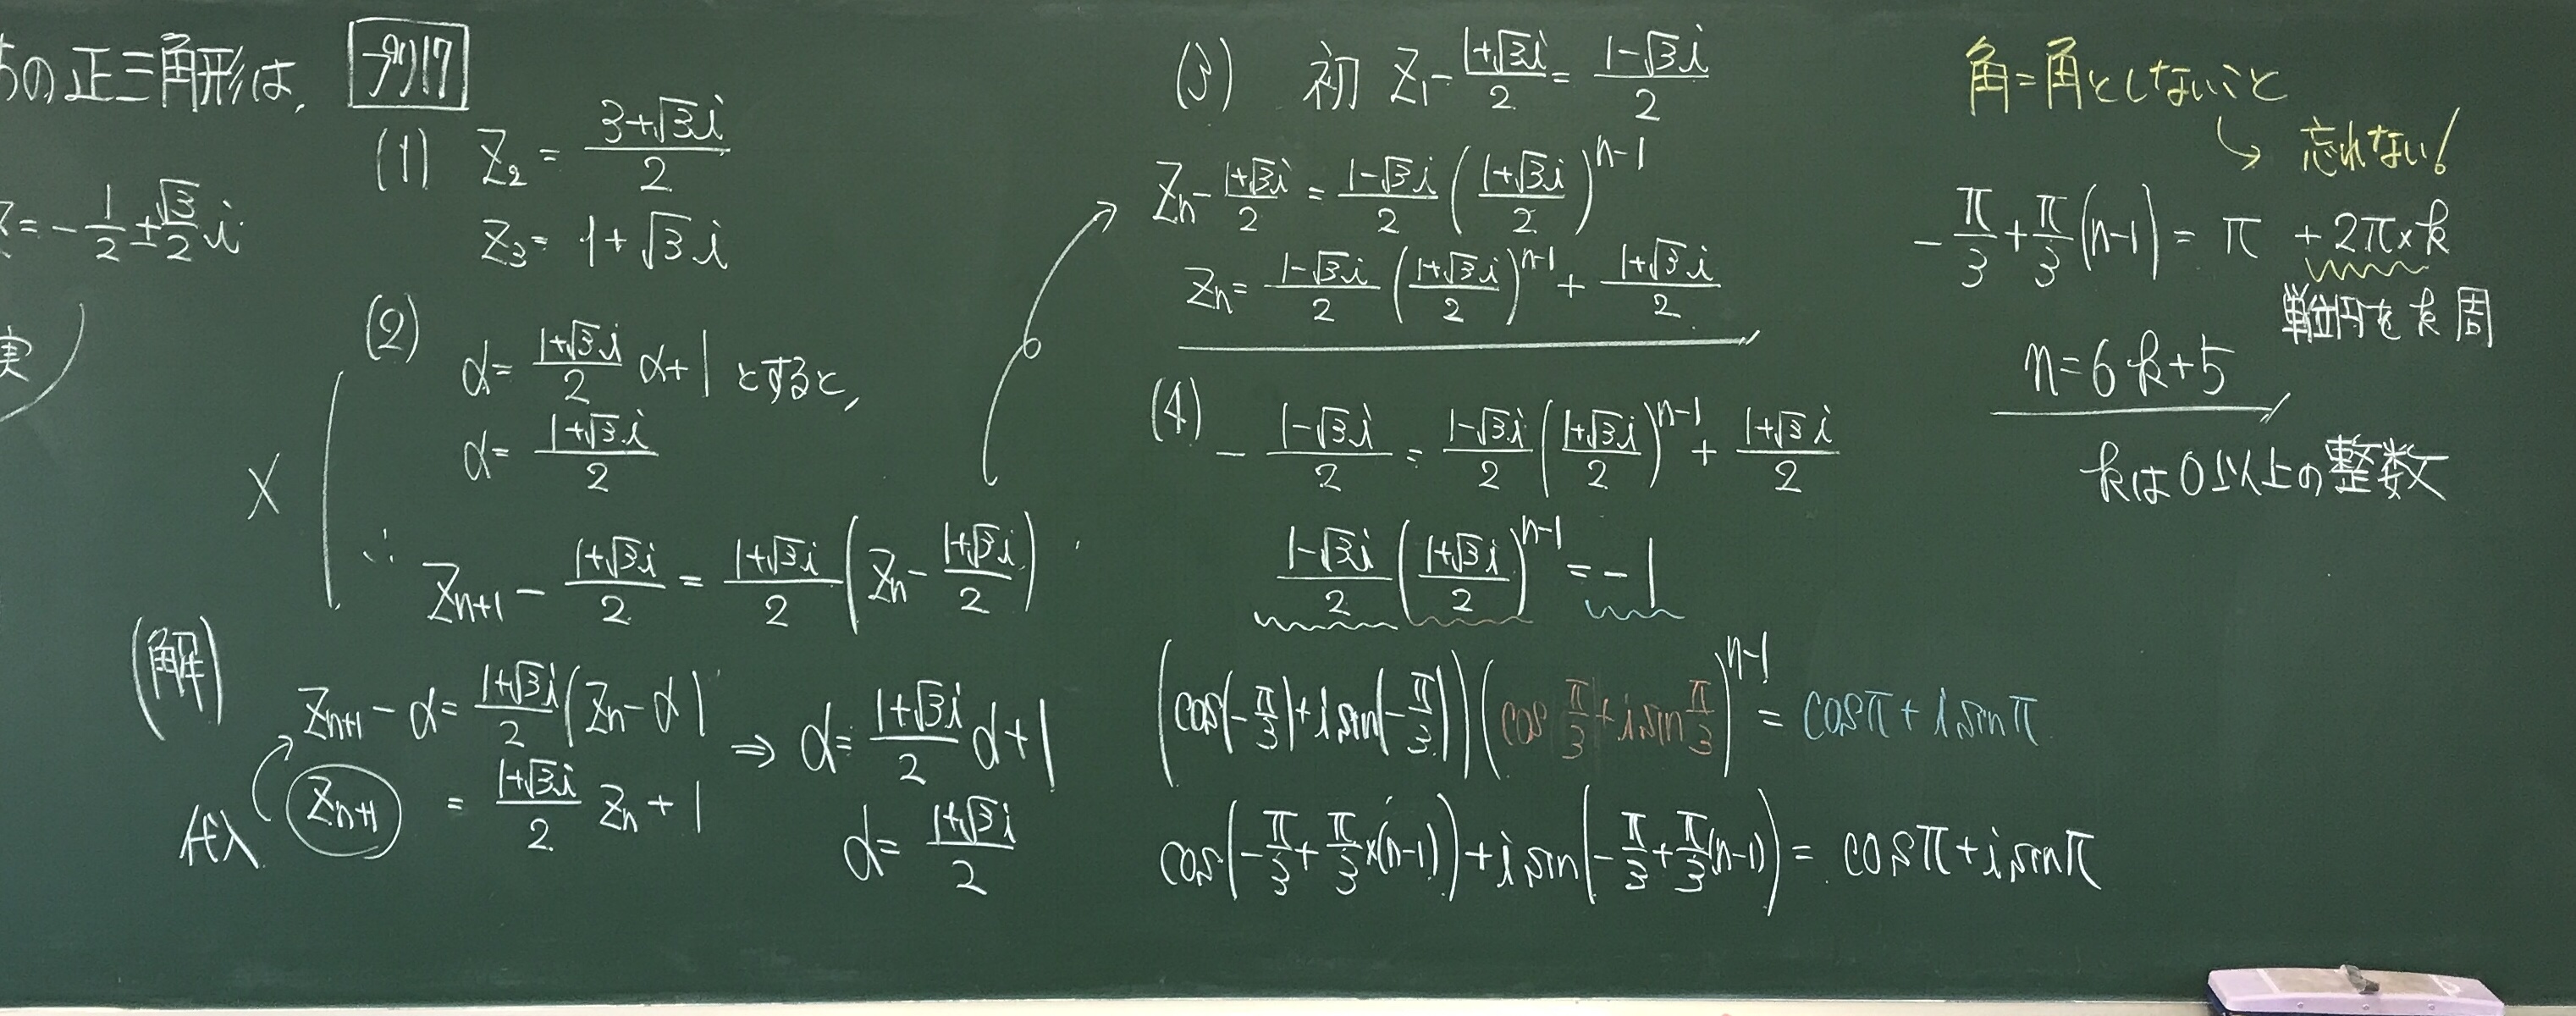 の正三角形は,
z = -1/2 ± √3/2 i
実
プリ17
(1) z₂ = (3+√3i)/2
z₃ = 1+√3i
(2)
α = (1+√3i)/2 α+1 とすると,
α = (1+√3i)/2
×
∴ zₙ₊₁ - (1+√3i)/2 = (1+√3i)/2 (zₙ - (1+√3i)/2)
(解)
zₙ₊₁ - α = (1+√3i)/2 (zₙ - α)
代入 zₙ₊₁ = (1+√3i)/2 zₙ + 1
⇒ α = (1+√3i)/2 α+1
α = (1+√3i)/2
(3) 初 z₁ - (1+√3i)/2 = (1-√3i)/2
zₙ - (1+√3i)/2 = (1-√3i)/2 ((1+√3i)/2)ⁿ⁻¹
zₙ = (1-√3i)/2 ((1+√3i)/2)ⁿ⁻¹ + (1+√3i)/2
(4) - (1-√3i)/2 = (1-√3i)/2 ((1+√3i)/2)ⁿ⁻¹ + (1+√3i)/2
(1-√3i)/2 ((1+√3i)/2)ⁿ⁻¹ = -1
(cos(-π/3)+i sin(-π/3))(cos π/3 + i sin π/3)ⁿ⁻¹ = cosπ + i sinπ
cos(-π/3 + π/3×(n-1)) + i sin(-π/3 + π/3(n-1)) = cosπ + i sinπ
角=角としないこと
↳ 忘れない!
-π/3 + π/3(n-1) = π + 2π×k
単位円をk周
n=6k+5
kは0以上の整数